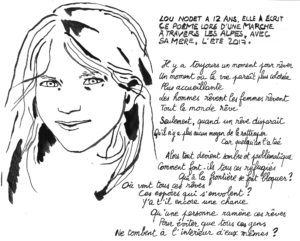 LOU NODET A 12 ANS, ELLE A ÉCRIT
CE POÈME LORS D'UNE MARCHE
À TRAVERS LES ALPES, AVEC
SA MÈRE, L'ÉTÉ 2017.
Il y a toujours un moment pour rêver
Un moment où la vie paraît plus colorée
Plus accueillante
Les hommes rêvent les femmes rêvent
Tout le monde rêve
Seulement, quand un rêve disparaît
Qu'il n'y a plus aucun moyen de le rattraper
Car quelqu'un l'a tué
Alors tout devient sombre et problématique
Comment font-ils tous ces réfugiés
Qu'à la frontière se font bloquer ?
Où sont tous ces rêves ?
Ces espoirs qui s'envolent ?
Y'a t'il encore une chance
Qu'une personne ramène ces rêves
Pour éviter que tous ces gens
Ne tombent à l'intérieur d'eux mêmes ?